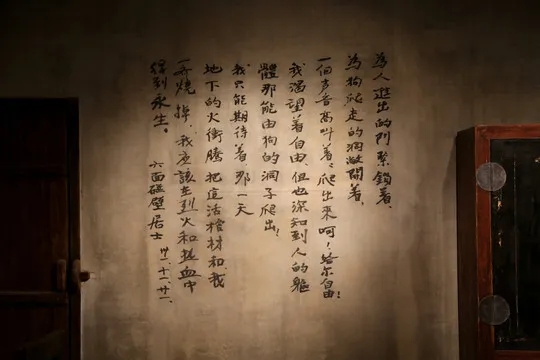 為人進出的門緊鎖着,
為狗爬走的洞敞開着,
一個声音高叫着:爬出來呵!給尔自由!
我渴望着自由,但也深知到人的軀
體那能由狗的洞子爬出!
我只能期待着,那一天
地下的火衝騰,把這活棺材和我
一齊燒掉,我應該在烈火和热血中
得到永生。
六面碰壁居士 卅一.十一.廿一.